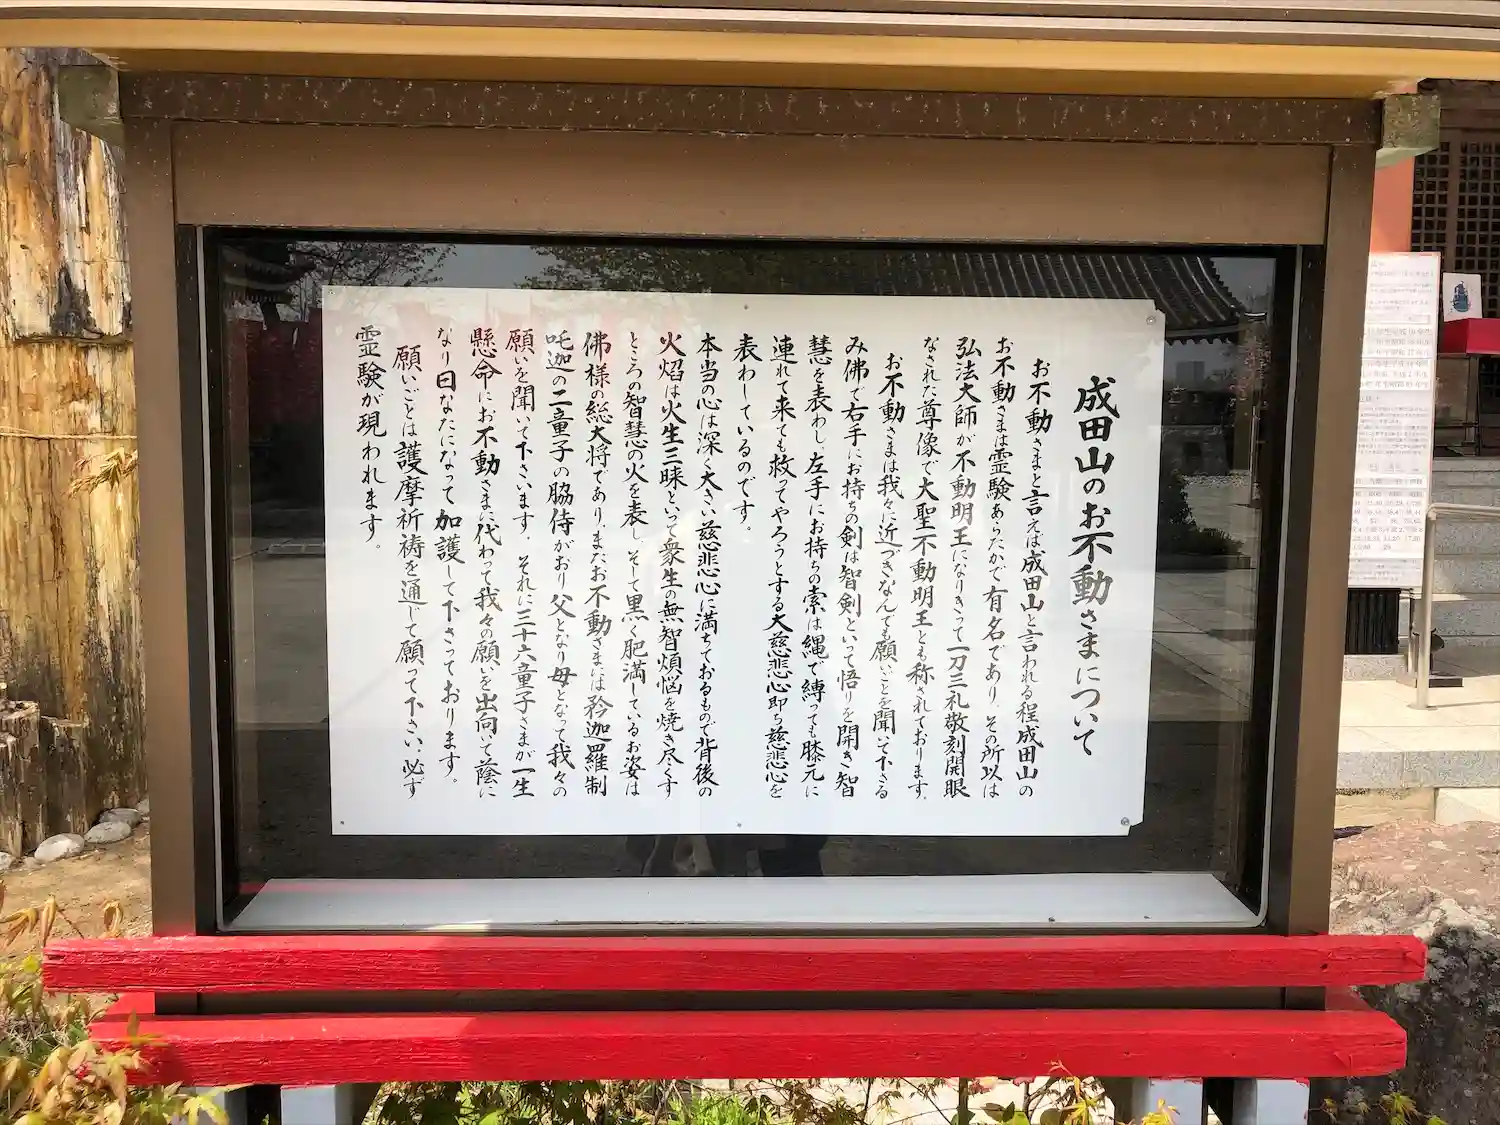 成田山のお不動さまについて
お不動さまと言えば成田山と言われる程成田山の
お不動さまは霊験あらたかで有名であり、その所以は
弘法大師が不動明王になりきって一刀三礼敬刻開眼
なされた尊像で大聖不動明王とも称されております。
お不動さまは我々に近づきなんでも願いごとを聞いて下さる
み佛で右手にお持ちの剣は智剣といって悟りを開き、智
慧を表わし、左手にお持ちの索は縄で縛っても膝元に
連れて来ても救ってやろうとする大慈悲心即ち慈悲心を
表わしているのです。
本当の心は深く大きい慈悲心に満ちておるもので背後の
火焰は火生三昧といって衆生の無智煩悩を焼き尽くす
ところの智慧の火を表し、そして黒く肥満しているお姿は
佛様の総大将であり、またお不動さまには矜迦羅制
吒迦の二童子の脇侍がおり父となり母となって我々の
願いを聞いて下さいます。それに三十六童子さまが一生
懸命にお不動さまに代わって我々の願いを出向いて蔭に
なり日なたになって加護して下さっております。
願いごとは護摩祈祷を通じて願って下さい、必ず
霊験が現われます。